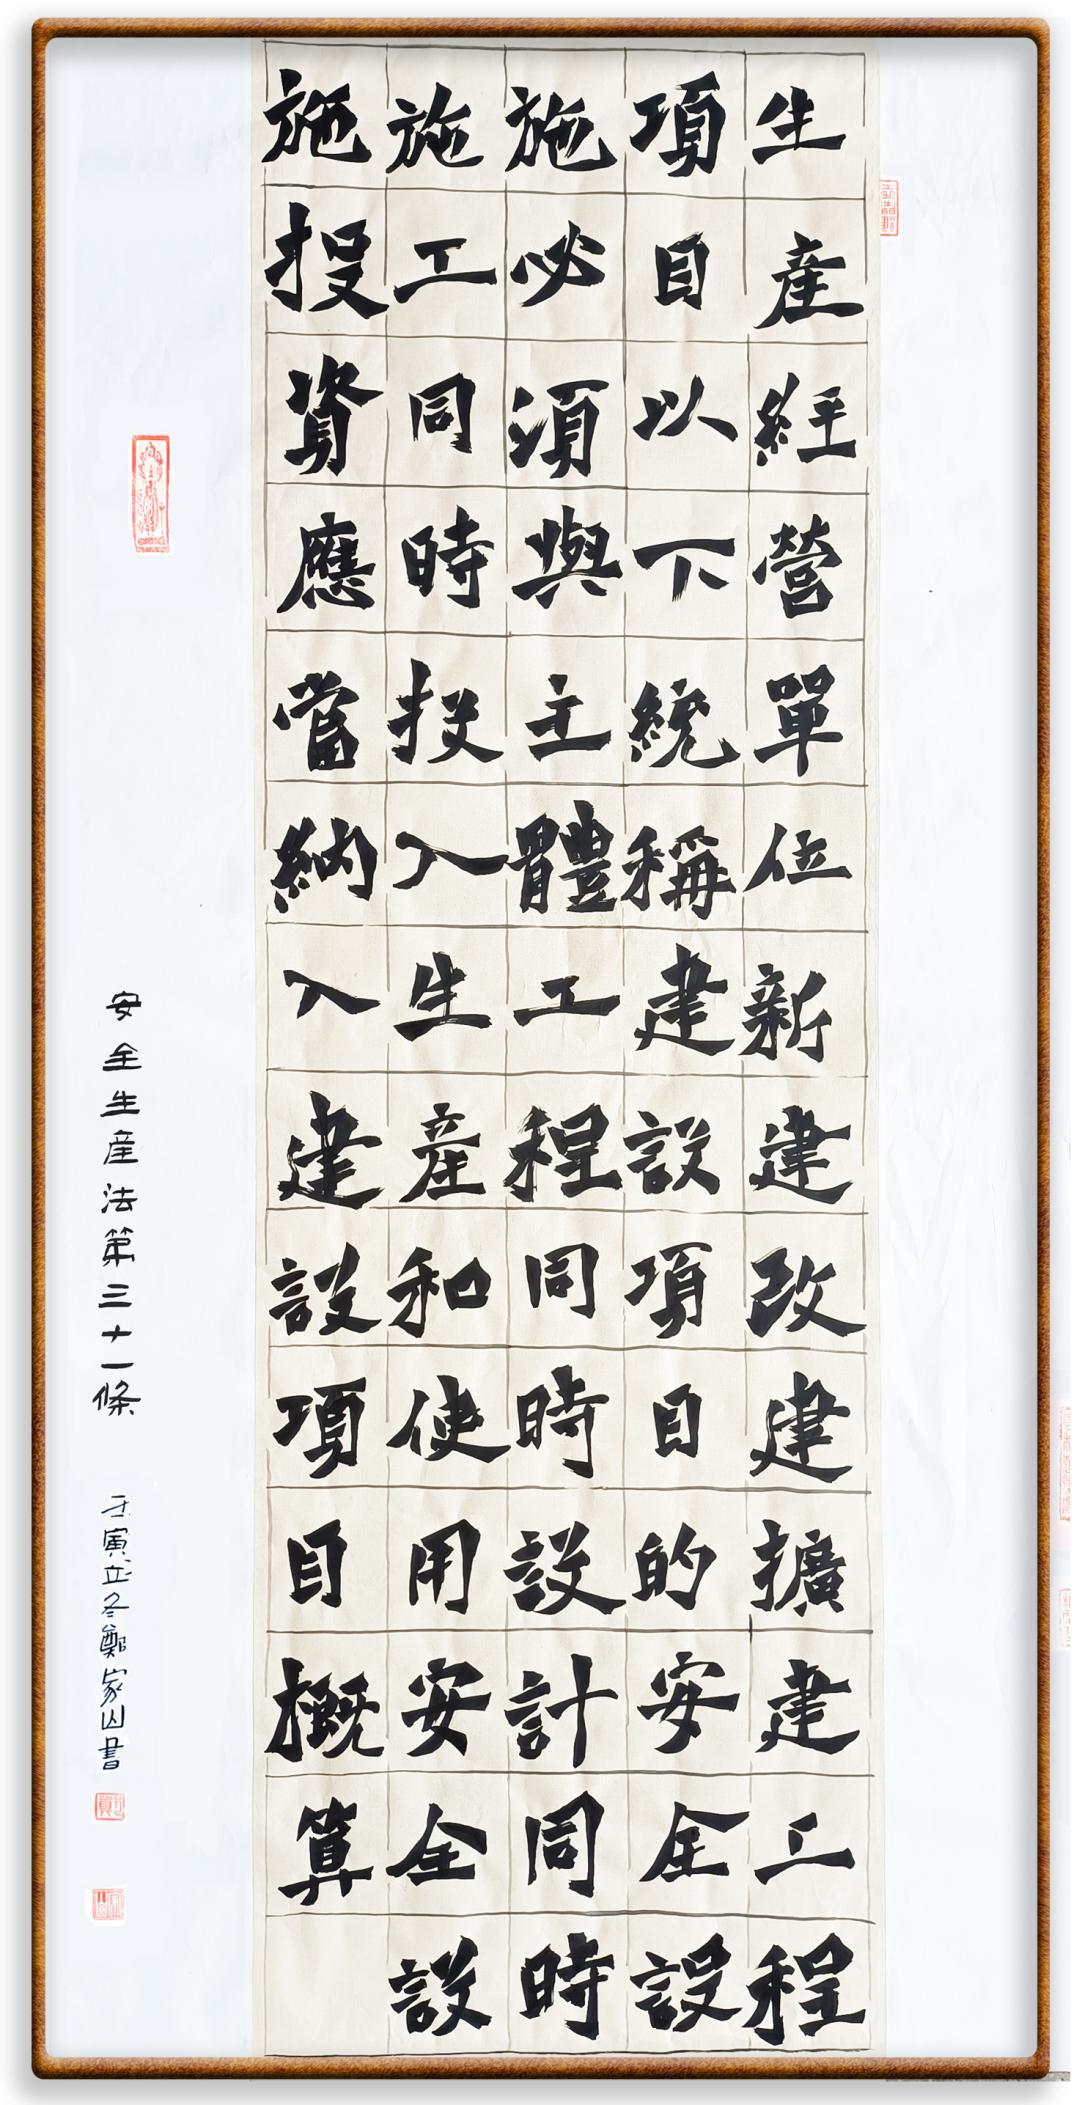 生產經營單位新建改建擴建工程
項目以下統稱建設項目的安全設
施必須與主體工程同時設計同時
施工同時投入生產和使用安全設
施投資應當納入建設項目概算
安全生產法第三十一條
壬寅立冬鄭家山書